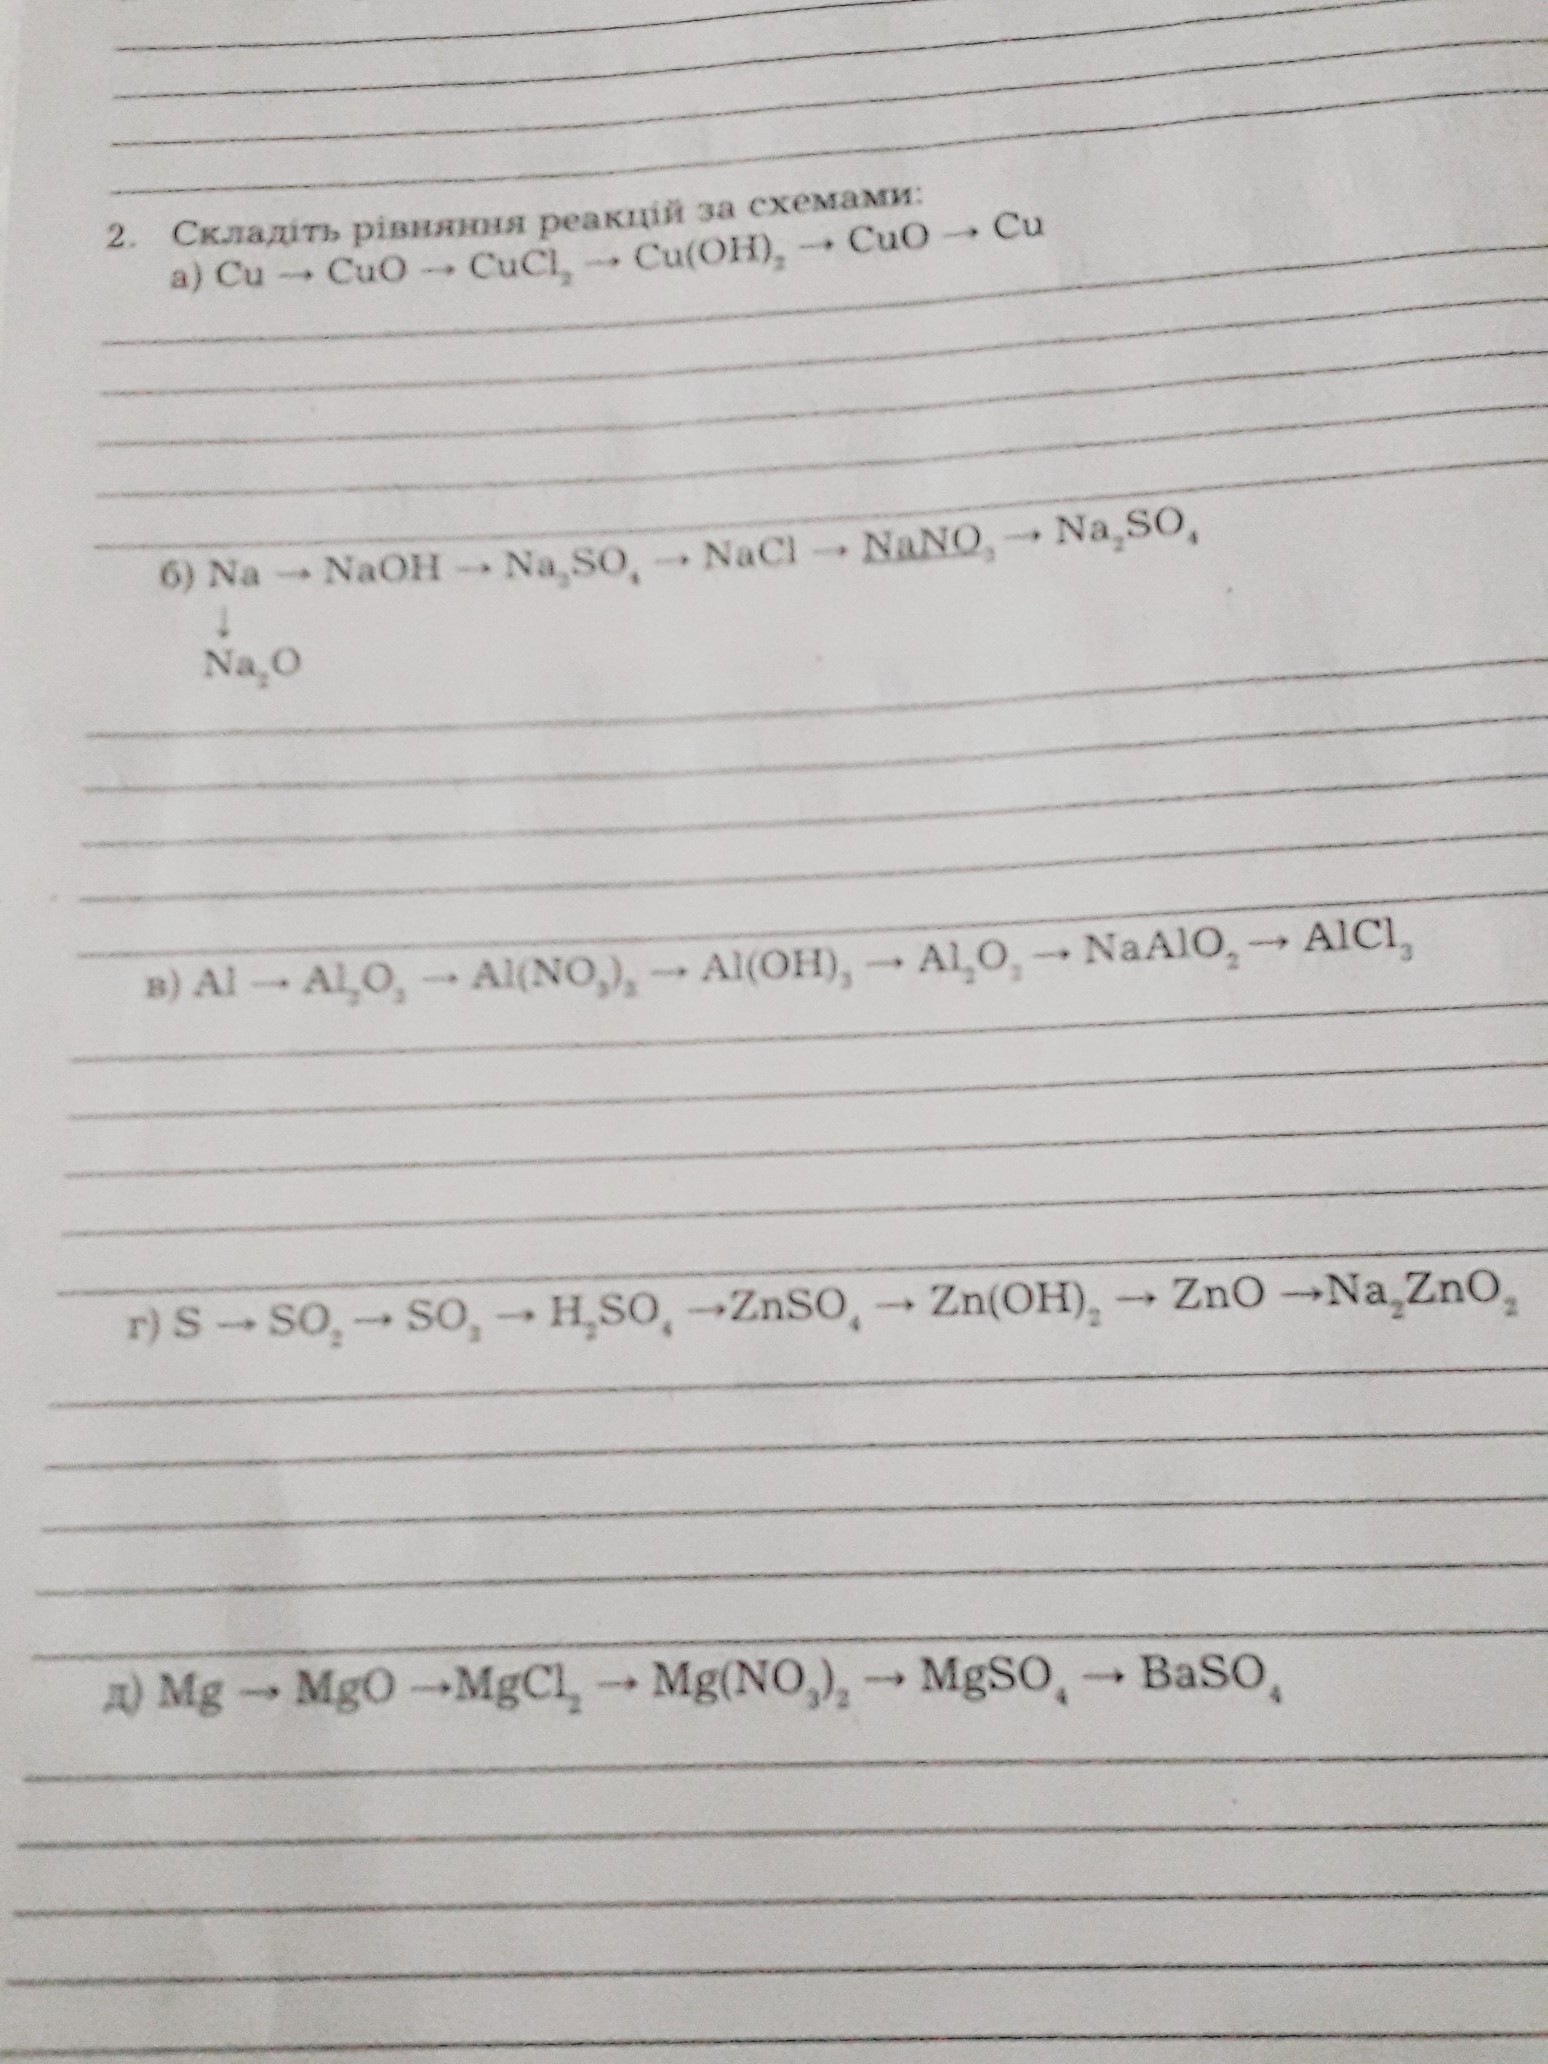 2. Складіть рівняння реакцій за схемами:
а) Cu → CuO → CuCl₂ → Cu(OH)₂ → CuO → Cu
б) Na → NaOH → Na₂SO₄ → NaCl → NaNO₃ → Na₂SO₄
↓
Na₂O
в) Al → Al₂O₃ → Al(NO₃)₃ → Al(OH)₃ → Al₂O₃ → NaAlO₂ → AlCl₃
г) S → SO₂ → SO₃ → H₂SO₄ →ZnSO₄ → Zn(OH)₂ → ZnO →Na₂ZnO₂
д) Mg → MgO →MgCl₂ → Mg(NO₃)₂ → MgSO₄ → BaSO₄